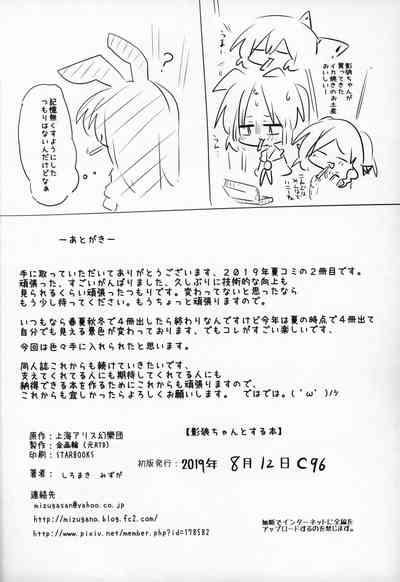 影狼ちゃんが
買ってきた
イカ焼きのお土産
おいしい！
記憶無くすようにした
つもりはないんだけどなぁ
ーあとがきー
手に取っていただいてありがとうございます、２０１９年夏コミの２冊目です。
頑張った、すごいがんばりました、久しぶりに技術的な向上も
見られるくらい頑張ったつもりです。変わってないと思ったなら
もう少し待ってください。もうちょっと頑張りますので。
いつもなら春夏秋冬で４冊出したら終わりなんですけど今年は夏の時点で４冊出て
自分でも見える景色が変わっております、でもコレがすごい楽しいです、
今回は色々手に入れられたと思います。
同人誌はこれからも続けていきたいです、
支えてくれてる人にも期待してくれてる人にも
納得できる本を作るためにこれからも頑張りますので、
これからも宜しかったらよろしくお願いします。　ではでは。(´ω`)ﾉｼ
原作：上海アリス幻樂団
製本：金画輪（元RTD）
印刷：STARBOOKS
著者：しろまき　みずが
【影狼ちゃんとする本】
初版発行：2019年　8月12日　C96
連絡先
mizugasan@yahoo.co.jp
http://mizugano.blog.fc2.com/
http://www.pixiv.net/member.php?id=178582
無断でインターネットに全編を
アップロードするのを禁じます。